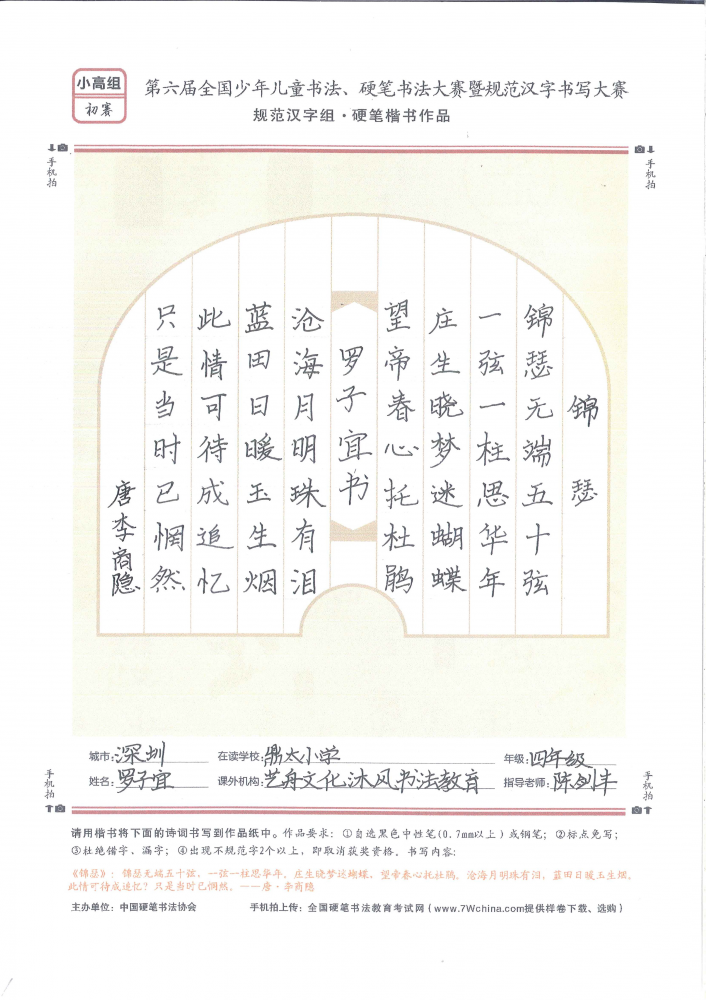 小高组
初赛
第六届全国少年儿童书法、硬笔书法大赛暨规范汉字书写大赛
规范汉字组·硬笔楷书作品
手机拍
手机拍
锦瑟
锦瑟无端五十弦
一弦一柱思华年
庄生晓梦迷蝴蝶
望帝春心托杜鹃
罗子宜书
沧海月明珠有泪
蓝田日暖玉生烟
此情可待成追忆
只是当时已惘然
唐李商隐
城市:深圳 在读学校:鼎太小学 年级:四年级
姓名:罗子宜 课外机构:艺舟文化沐风书法教育 指导老师:陈剑丰
手机拍
手机拍
请用楷书将下面的诗词书写到作品纸中。作品要求：①自选黑色中性笔(0.7mm以上)或钢笔；②标点免写；
③杜绝错字、漏字；④出现不规范字2个以上，即取消获奖资格。书写内容：
《锦瑟》：锦瑟无端五十弦，一弦一柱思华年。庄生晓梦迷蝴蝶，望帝春心托杜鹃。沧海月明珠有泪，蓝田日暖玉生烟。
此情可待成追忆？只是当时已惘然。——唐·李商隐
主办单位：中国硬笔书法协会 手机拍上传：全国硬笔书法教育考试网(www.7Wchina.com提供样卷下载、选购)